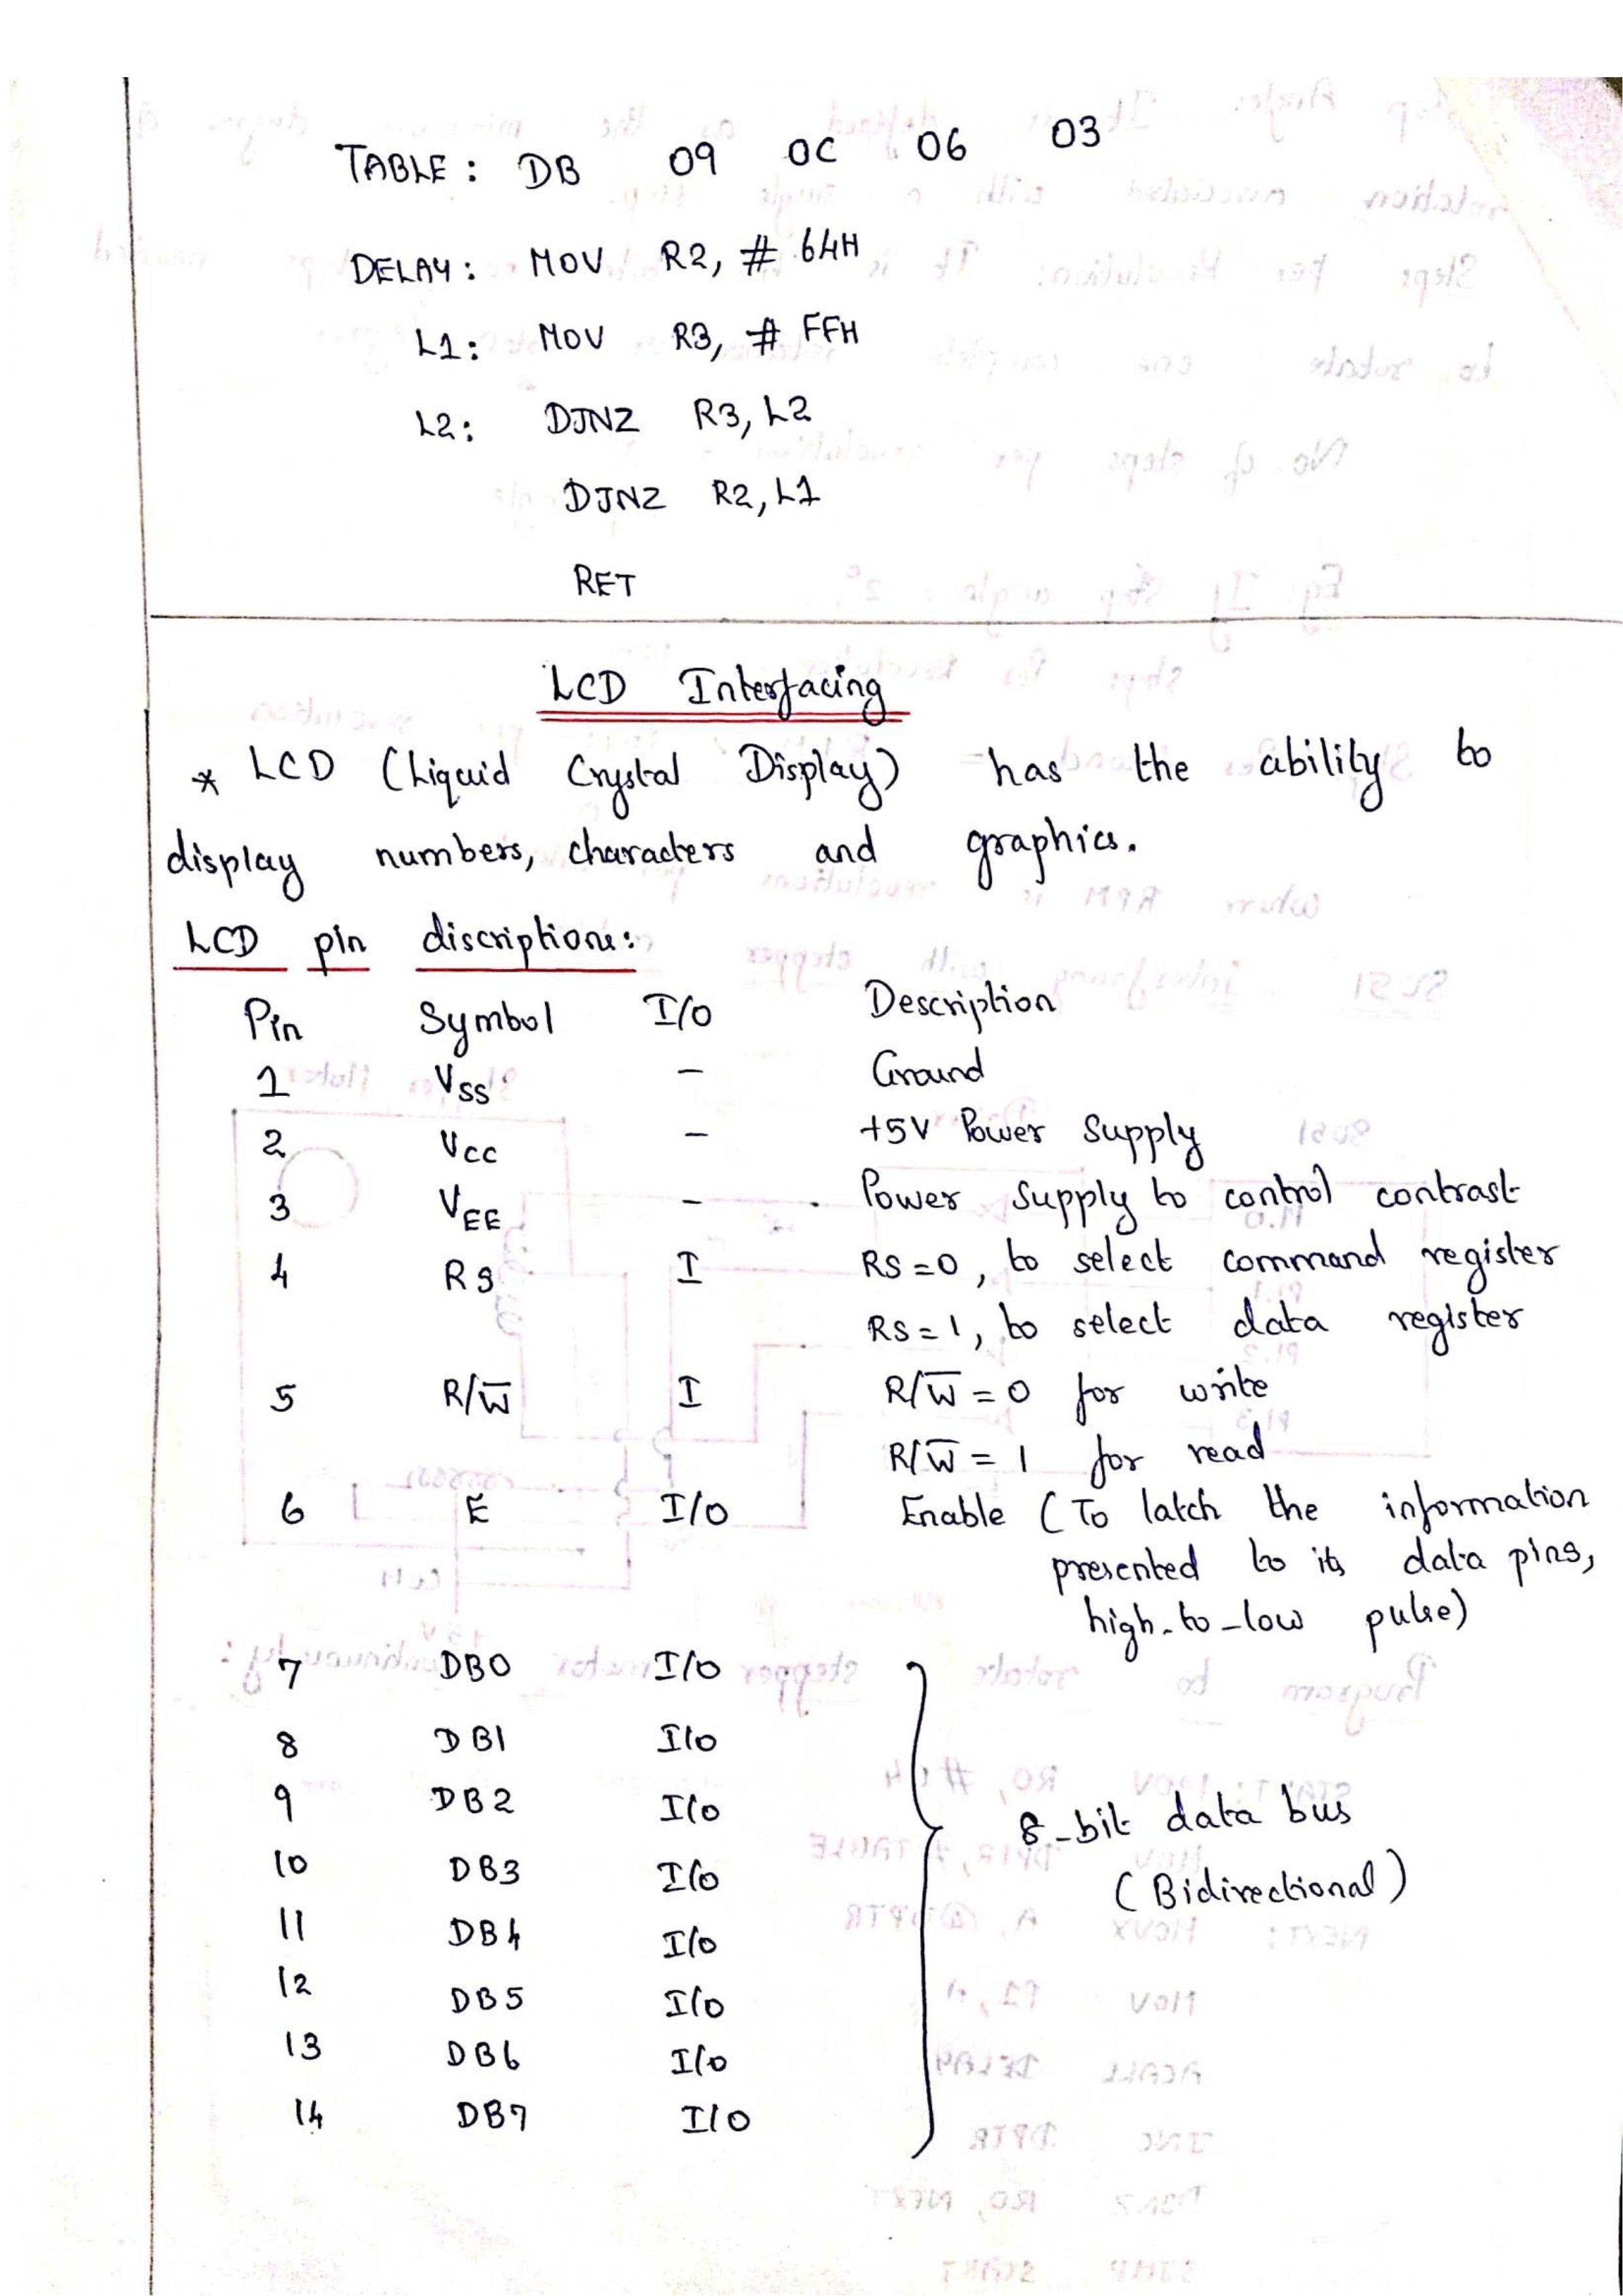 TABLE : DB 09 0C 06 03
DELAY : MOV R2, # 64H
L1 : MOV R3, # FFH
L2 : DJNZ R3, L2
DJNZ R2, L1
RET
LCD Interfacing
* LCD (Liquid Crystal Display) has the ability to
display numbers, characters and graphics.
LCD pin discriptions:
Pin Symbol I/O Description
1 VSS – Ground
2 VCC – +5V Power Supply
3 VEE – Power Supply to control contrast
4 RS I RS = 0, to select command register
RS = 1, to select data register
5 R/W̅ I R/W̅ = 0 for write
R/W̅ = 1 for read
6 E I/O Enable (To latch the information
presented to its data pins,
high-to-low pulse)
7 DB0 I/O
8 DB1 I/O
9 DB2 I/O
8-bit data bus
10 DB3 I/O
(Bidirectional)
11 DB4 I/O
12 DB5 I/O
13 DB6 I/O
14 DB7 I/O